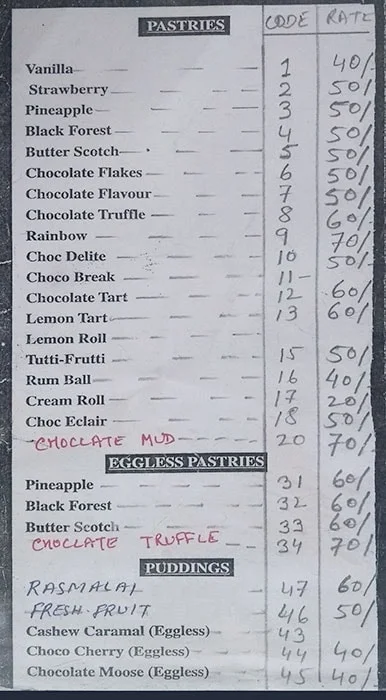 PASTRIES CODE RATE
Vanilla 1 40/
Strawberry 2 50/
Pineapple 3 50/
Black Forest 4 50/
Butter Scotch 5 50/
Chocolate Flakes 6 50/
Chocolate Flavour 7 50/
Chocolate Truffle 8 60/
Rainbow 9 70/
Choc Delite 10 50/
Choco Break 11
Chocolate Tart 12 60/
Lemon Tart 13 60/
Lemon Roll
Tutti-Frutti 15 50/
Rum Ball 16 40/
Cream Roll 17 20/
Choc Eclair 18 50/
CHOCLATE MUD 20 70/
EGGLESS PASTRIES
Pineapple 31 60/
Black Forest 32 60/
Butter Scotch 33 60/
CHOCLATE TRUFFLE 34 70/
PUDDINGS
RASMALAI 47 60/
FRESH FRUIT 46 50/
Cashew Caramal (Eggless) 43
Choco Cherry (Eggless) 44 40/
Chocolate Moose (Eggless) 45 40/